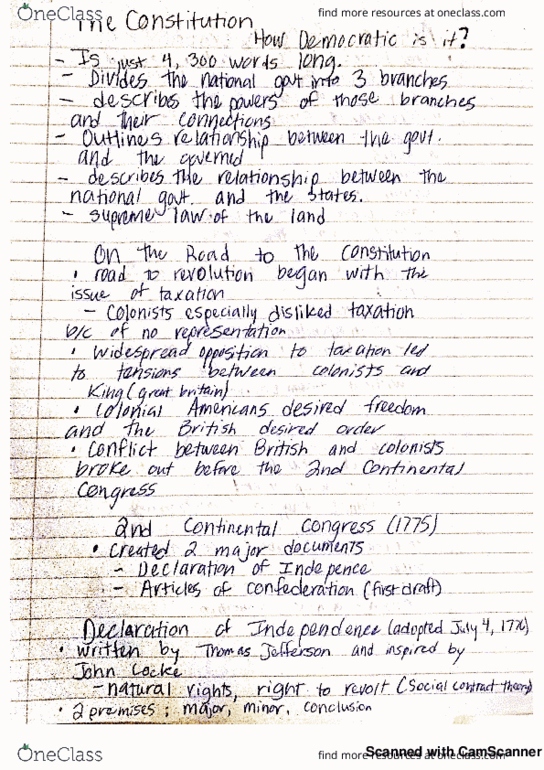 OneClass
find more resources at oneclass.com
The Constitution
How Democratic is it?
- Is just 4,300 words long.
- Divides the national govt into 3 branches
- describes the powers of those branches
and their connections
- Outlines relationship between the govt.
and the governed
- describes the relationship between the
national govt. and the states.
- supreme law of the land
On the Road to the Constitution
• road to revolution began with the
issue of taxation
- Colonists especially disliked taxation
b/c of no representation
• widespread opposition to taxation led
to tensions between colonists and
King (great britain)
• Colonial Americans desired freedom
and the British desired order
• Conflict between British and colonists
broke out before the 2nd Continental
Congress
2nd Continental Congress (1775)
• Created 2 major documents
- Declaration of Indepence
- Articles of confederation (first draft)
Declaration of Independence (adopted July 4, 1776)
• written by Thomas Jefferson and inspired by
John Locke
- natural rights, right to revolt (Social contract theory)
• 2 premises; major, minor, conclusion
OneClass
find more resources at oneclass.com
Scanned with CamScanner